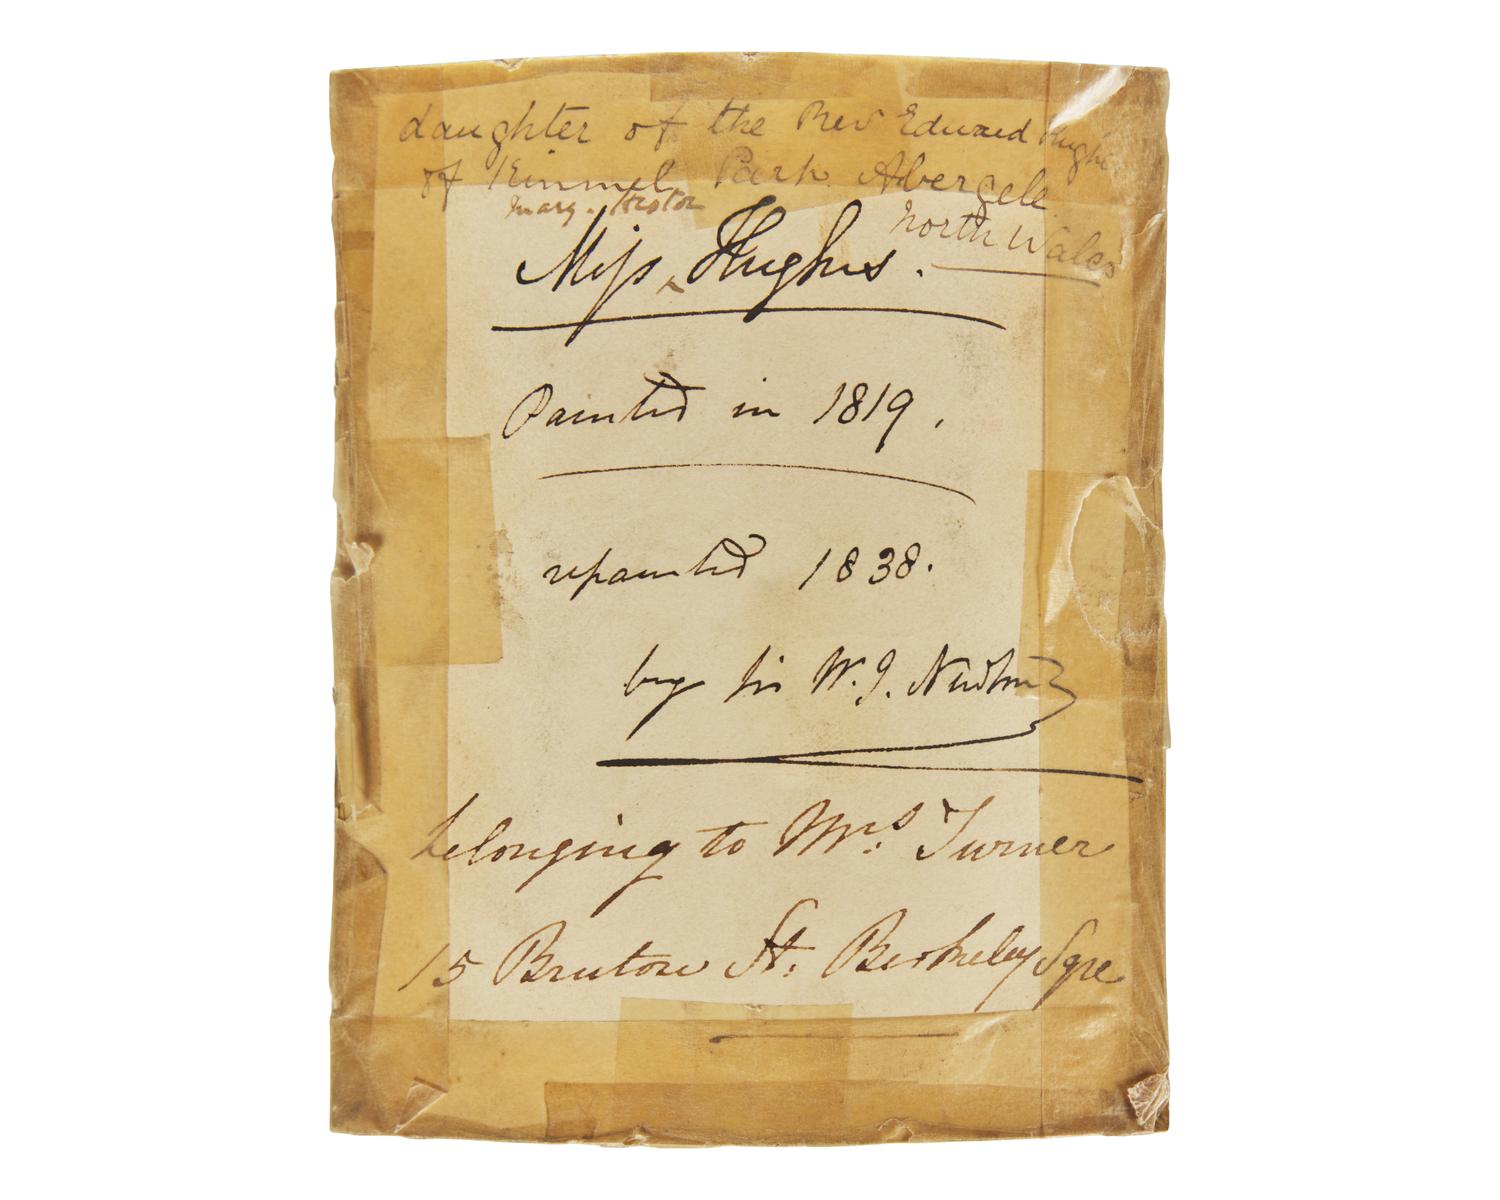 daughter of the Rev Edward Hughes
of Kinmel Park Abergele
North Wales
Mary Hester
Miss ^ Hughes.
Painted in 1819.
repainted 1838.
by Sir W. J. Newton
belonging to Mrs. Turner
15 Bruton St. Berkeley Sqre